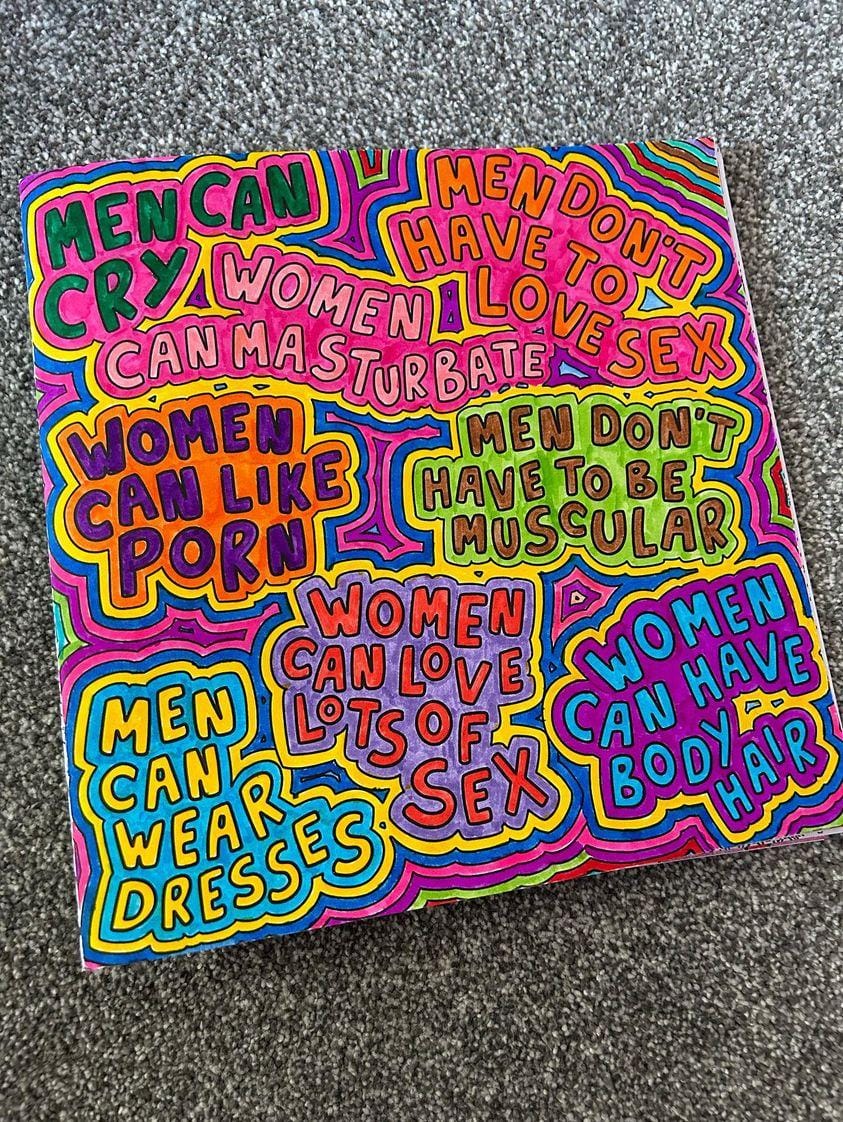 MEN CAN
CRY
MEN DON'T
HAVE TO
LOVE SEX
WOMEN
CAN MASTURBATE
WOMEN
CAN LIKE
PORN
MEN DON'T
HAVE TO BE
MUSCULAR
WOMEN
CAN LOVE
LOTS OF
SEX
WOMEN
CAN HAVE
BODY
HAIR
MEN
CAN
WEAR
DRESSES